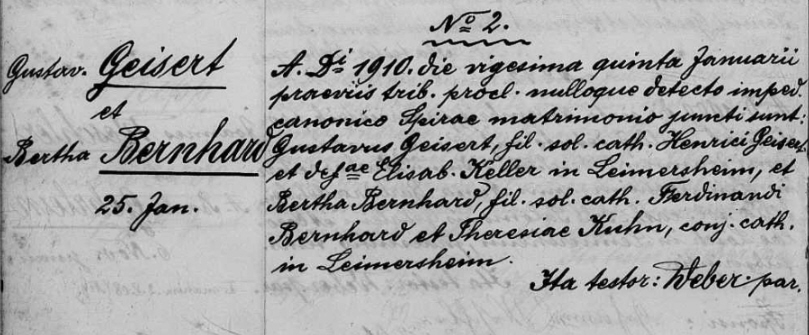 No 2.
Gustav. Geisert
et
Bertha Bernhard
25. Jan.
A. Di 1910. die vigesima quinta Januarii
praeviis trib. procl. nulloque detecto imped.
canonico Spirae matrimonio juncti sunt:
Gustavus Geisert, fil. sol. cath. Henrici Geisert
et defae Elisab. Keller in Leimersheim, et
Bertha Bernhard, fil. sol. cath. Ferdinandi
Bernhard et Theresiae Kuhn, conj. cath.
in Leimersheim.
Ita testor: Weber. par.